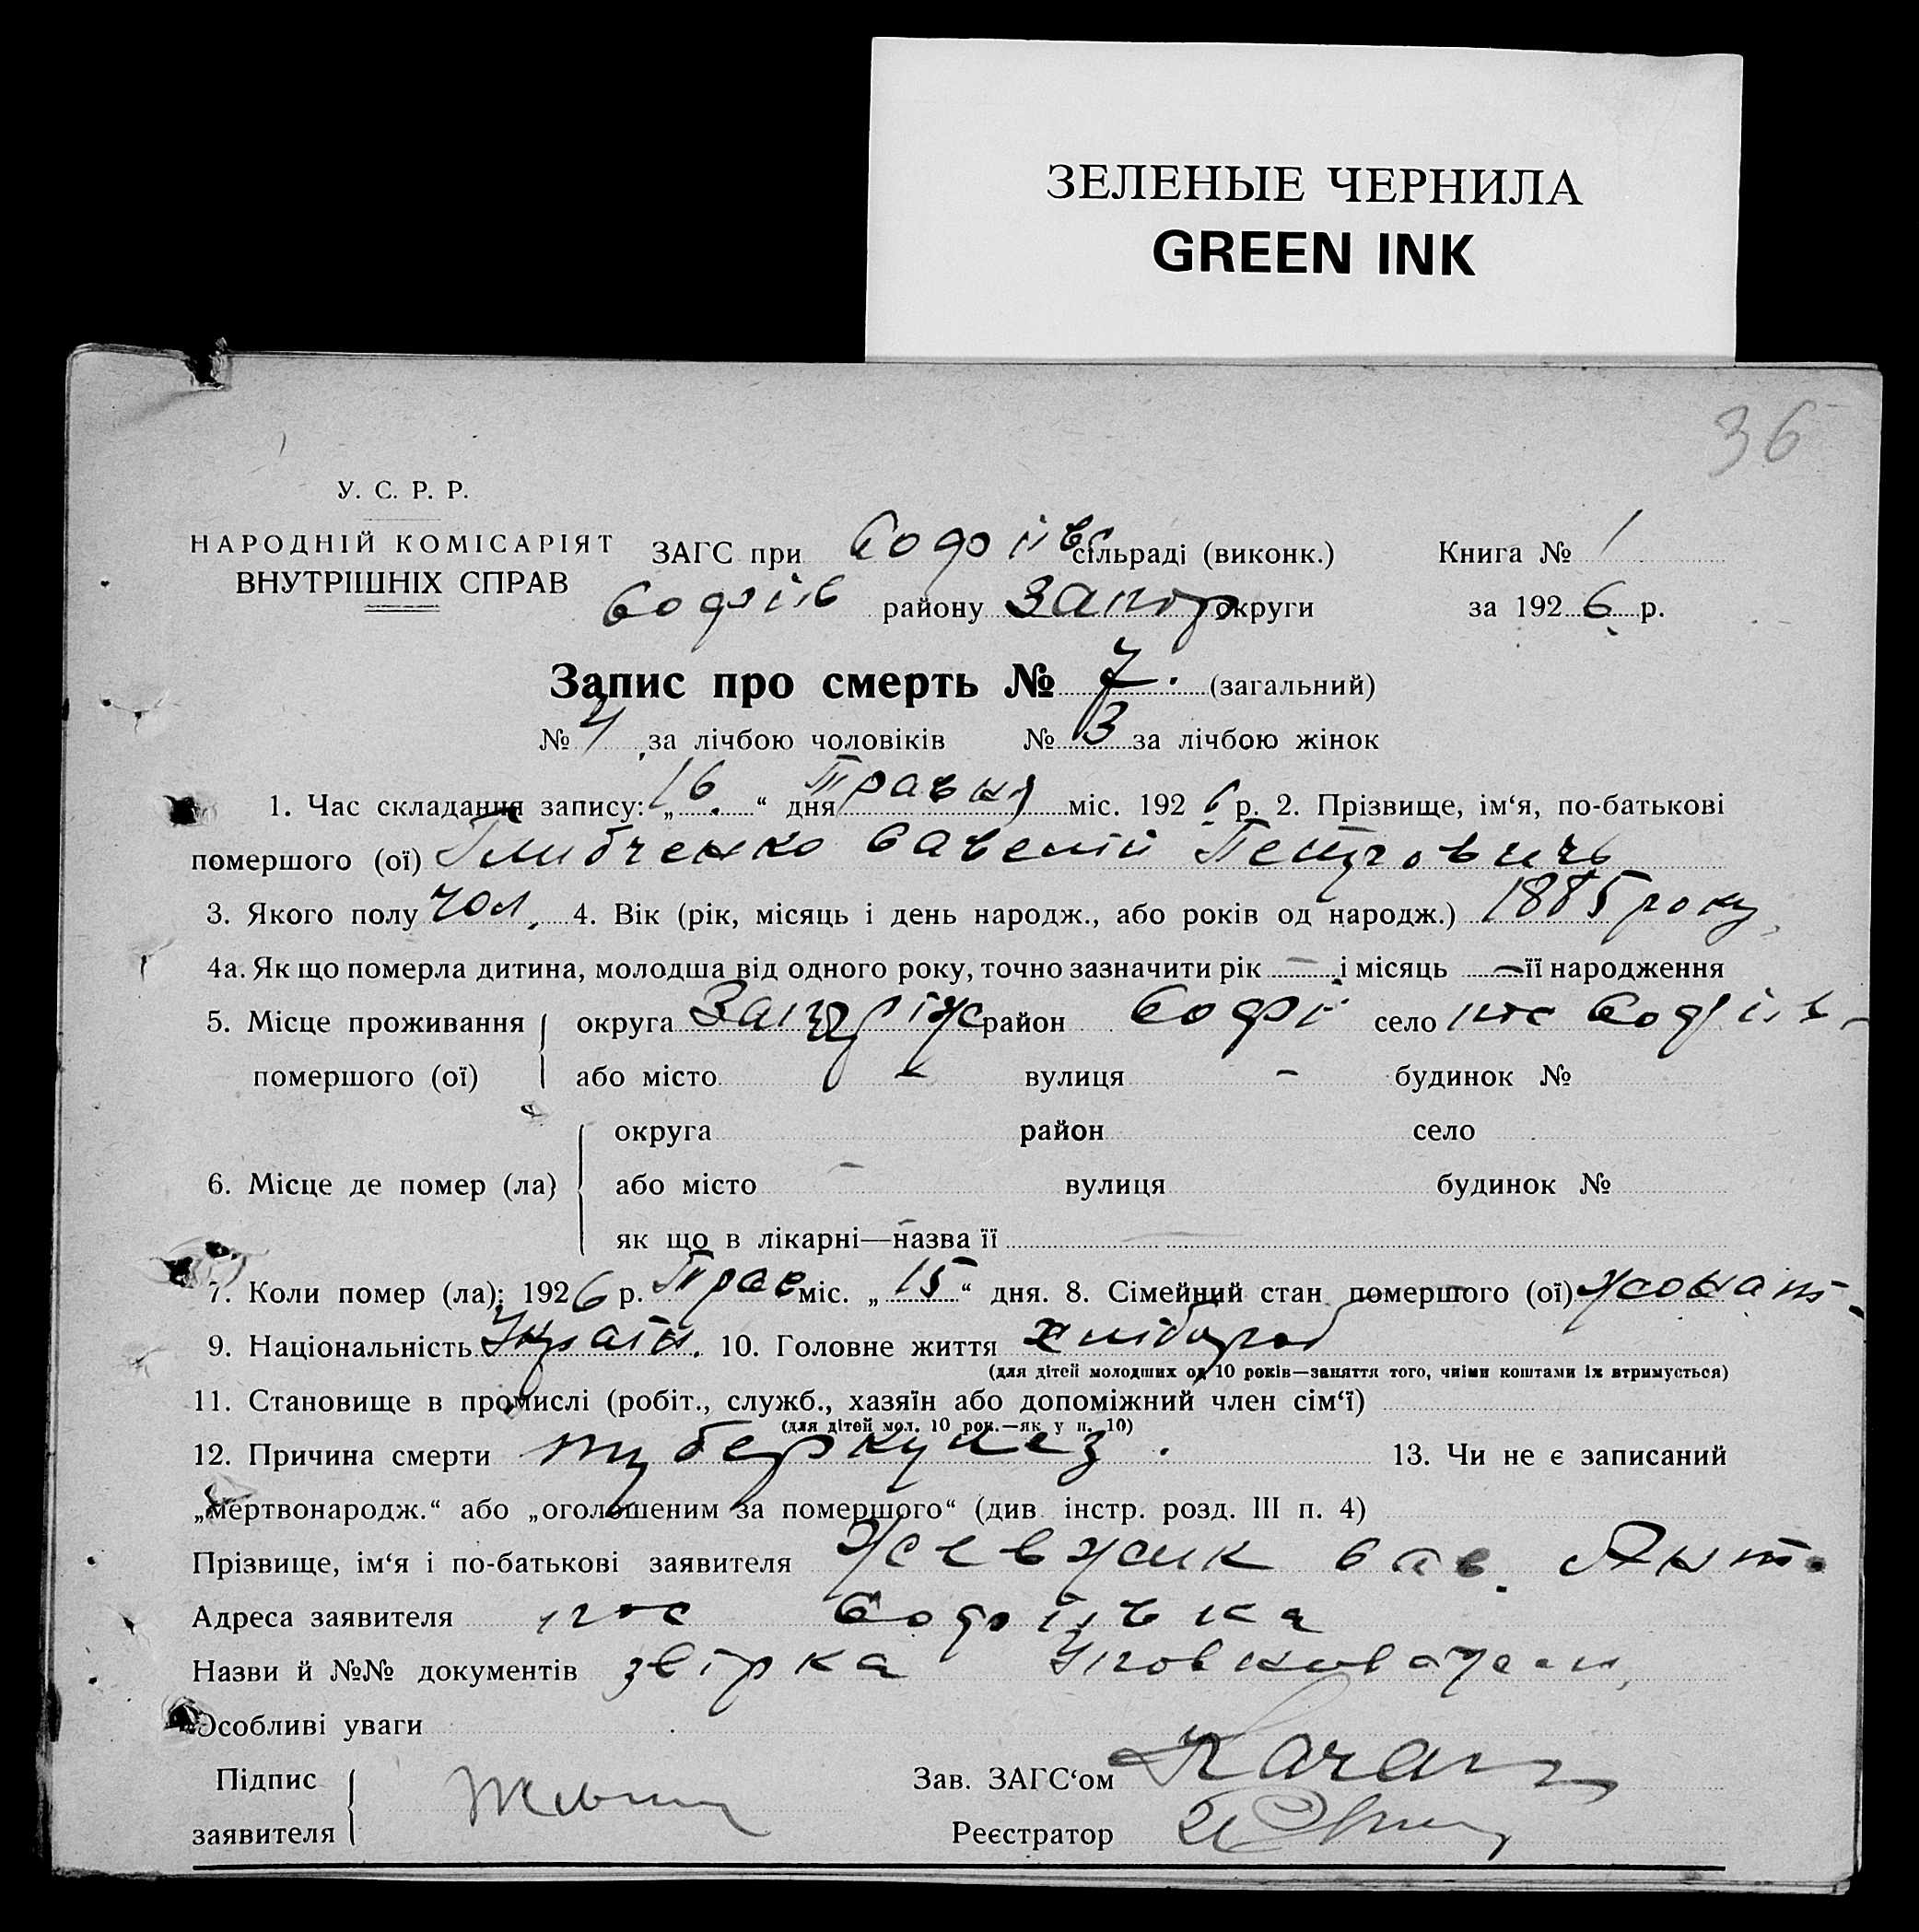 ЗЕЛЕНЫЕ ЧЕРНИЛА
GREEN INK
36
У. С. Р. Р.
НАРОДНІЙ КОМІСАРІЯТ
ВНУТРІШНІХ СПРАВ
ЗАГС при Софіівс сільраді (виконк.) Книга № 1
Софіів району Запор округи за 1926 р.
Запис про смерть № 7. (загальний)
№ 4 за лічбою чоловіків № 3 за лічбою жінок
1. Час складання запису: „16.“ дня Травня міс. 1926 р. 2. Прізвище, ім‘я, по-батькові
помершого (ої) Глибченко Савелій Петровичь
3. Якого полу чол. 4. Вік (рік, місяць і день народж., або років од народж.) 1885 року
4а. Як що померла дитина, молодша від одного року, точно зазначити рік — і місяць — її народження
5. Місце проживання помершого (ої) округа Запоріж район Софі село пос Софіів-
або місто — вулиця — будинок №
6. Місце де помер (ла) округа район село
або місто — вулиця будинок №
як що в лікарні—назва її
7. Коли помер (ла): 1926 р. Трав міс. „15“ дня. 8. Сімейний стан помершого (ої) жонат-
9. Національність Україн. 10. Головне життя хлібороб
(для дітей молодших од 10 років—заняття того, чиїми коштами їх втримується)
11. Становище в промислі (робіт., служб., хазяїн або допоміжний член сім‘ї)
(для дітей мол. 10 рок.—як у п. 10)
12. Причина смерти туберкулез. 13. Чи не є записаний
„мертвонародж.“ або „оголошеним за помершого“ (див інстр. розд. III п. 4)
Прізвище, ім‘я і по-батькові заявителя Жевжик Сав. Ант.
Адреса заявителя пос Софіівка
Назви й №№ документів звірка
Особливі уваги
Підпис заявителя
Зав. ЗАГС‘ом Качан
Реєстратор